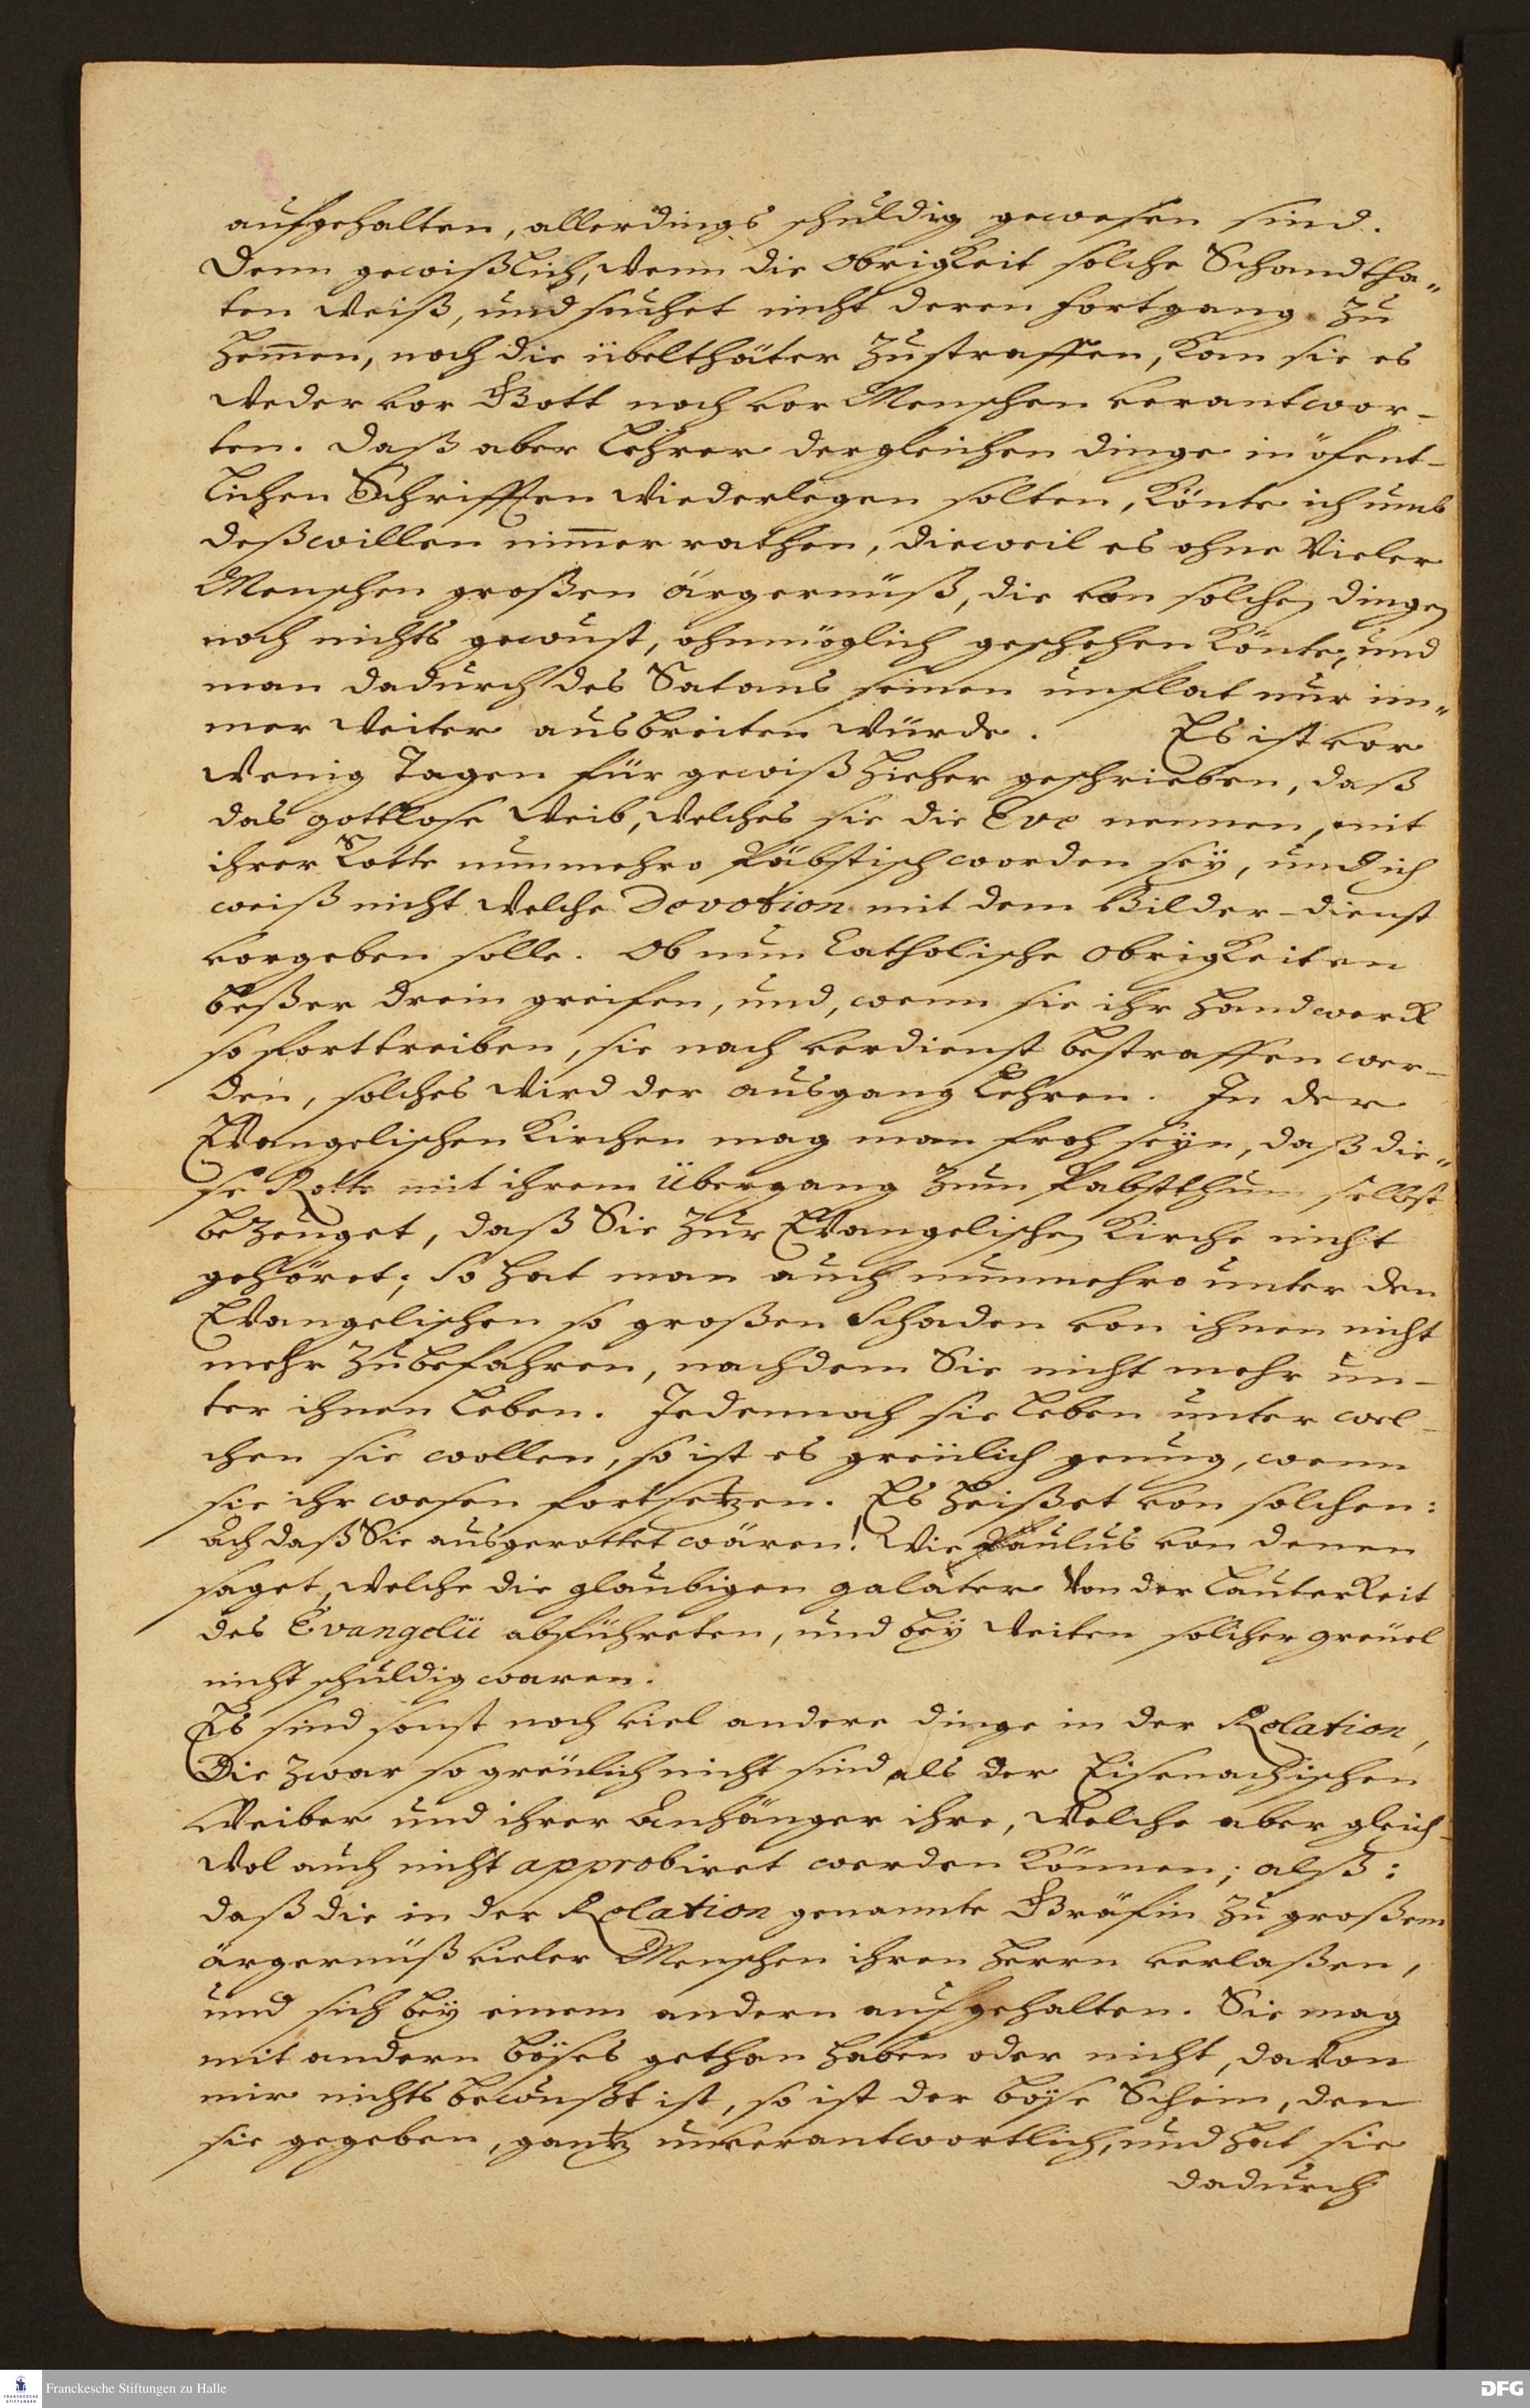 aufgehalten, allerdings schuldig gewesen sind.
Denn gewißlich, wenn die Obrigkeit solche Schandtha„
ten weiß, und suchet nicht deren fortgang zu
hem̅en, noch die übelthäter zustraffen, kan sie es
weder vor Gott noch vor Menschen verantwor-
ten. Daß aber Lehrer dergleichen dinge in öfent-
lichen Schrifften wiederlegen solten, könte ich umb
deßwillen nim̅er rathen, dieweil es ohne vieler
Menschen großen ärgernüß, die von solchen dingen
noch nichts gewust, ohnmöglich geschehen könte, und
man dadurch des Satans seinen unflat nur im„
mer weiter ausbreiten würde. Es ist vor
wenig Tagen für gewiß hieher geschrieben, daß
das gottlose Weib, welches sie die Eve nennen, mit
ihrer Rotte nunmehro Päbstisch worden sey, und ich
weiß nicht welche Devotion mit dem Bilder-dienst
vorgeben solle. Ob nun Catholische Obrigkeiten
beßer drein greifen, und, wenn sie ihr handwerck
so forttreiben, sie nach verdienst bestraffen wer-
den, solches wird der ausgang lehren. In der
Evangelischen Kirchen mag man froh seyn, daß die„
se Rotte mit ihrem Übergang zum Pabstthum selbst
bezeuget, daß Sie zur Evangelischen Kirche nicht
gehöret; So hat man auch nunmehro unter den
Evangelischen so großen Schaden von ihnen nicht
mehr zubefahren, nachdem Sie nicht mehr un-
ter ihnen leben. Jedennoch sie leben unter wel-
chen sie wollen, so ist es greülich genug, wenn
sie ihr wesen fortsetzen. Es heißet von solchen:
Ach daß Sie ausgerottet wären! Wie Paulus von denen
saget, welche die glaubigen galater von der Lauterkeit
des Evangelii abführeten, und bey weiten solcher greüel
nicht schuldig waren.
Es sind sonst noch viel andere dinge in der Relation,
Die zwar so greülich nicht sind als der Eisenachischen
Weiber und ihrer Anhänger ihre, welche aber gleich-
wol auch nicht approbiret werden können; alß:
daß die in der Relation genannte Gräfin zu großem
ärgernüß vieler Menschen ihren Herrn verlaßen,
und sich bey einem andern aufgehalten. Sie mag
mit andern böses gethan haben oder nicht, davon
mir nichts bewußt ist, so ist der böse Schein, den
sie gegeben, gantz unverantwortlich, und hat sie
dadurch
Franckesche Stiftungen zu Halle
DFG